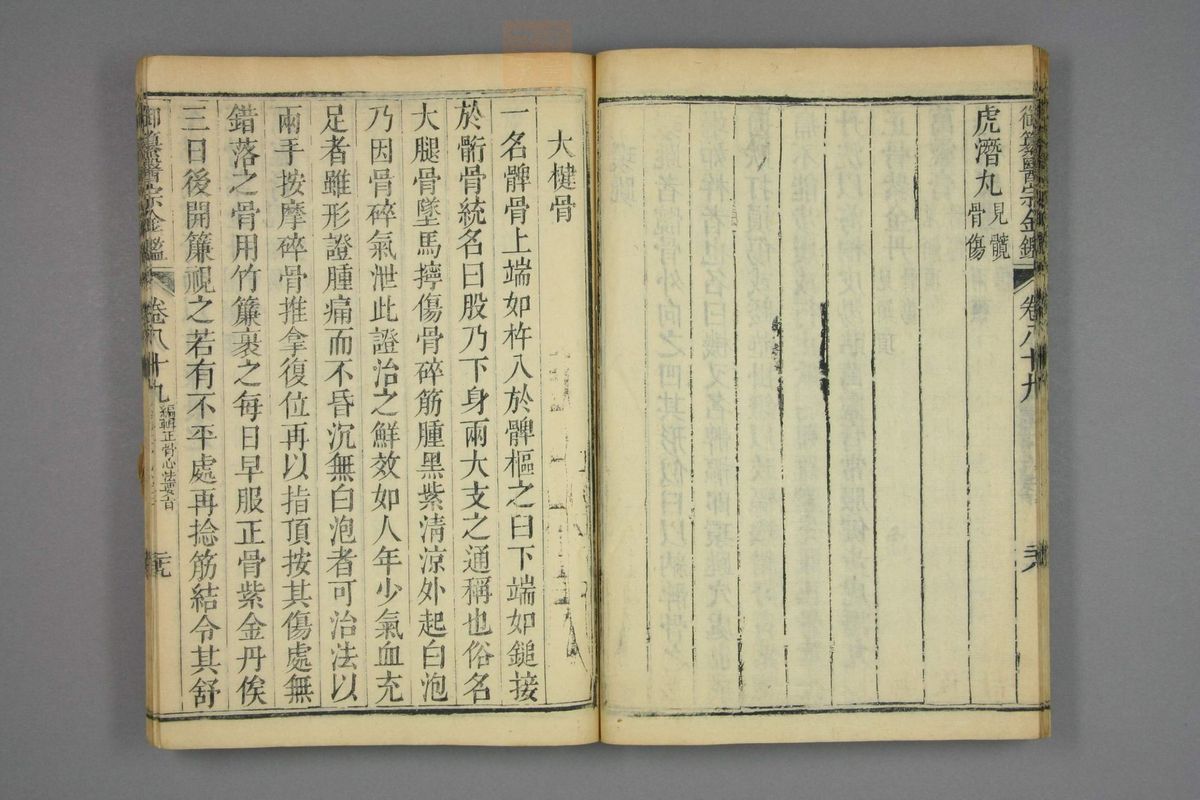 御纂醫宗金鑑 卷八十九
虎潛丸 見髖
骨傷
大楗骨
一名髀骨上端如杵入於髀樞之臼下端如鎚接
於骱骨統名曰股乃下身兩大支之通稱也俗名
大腿骨墜馬擰傷骨碎筋腫黑紫清涼外起白泡
乃因骨碎氣泄此證治之鮮效如人年少氣血充
足者雖形證腫痛而不昏沉無白泡者可治法以
兩手按摩碎骨推拿復位再以指頂按其傷處無
錯落之骨用竹簾裹之每日早服正骨紫金丹俟
三日後開簾視之若有不平處再捻筋結令其舒
御纂醫宗金鑑 卷八十九 編輯正骨心法要旨